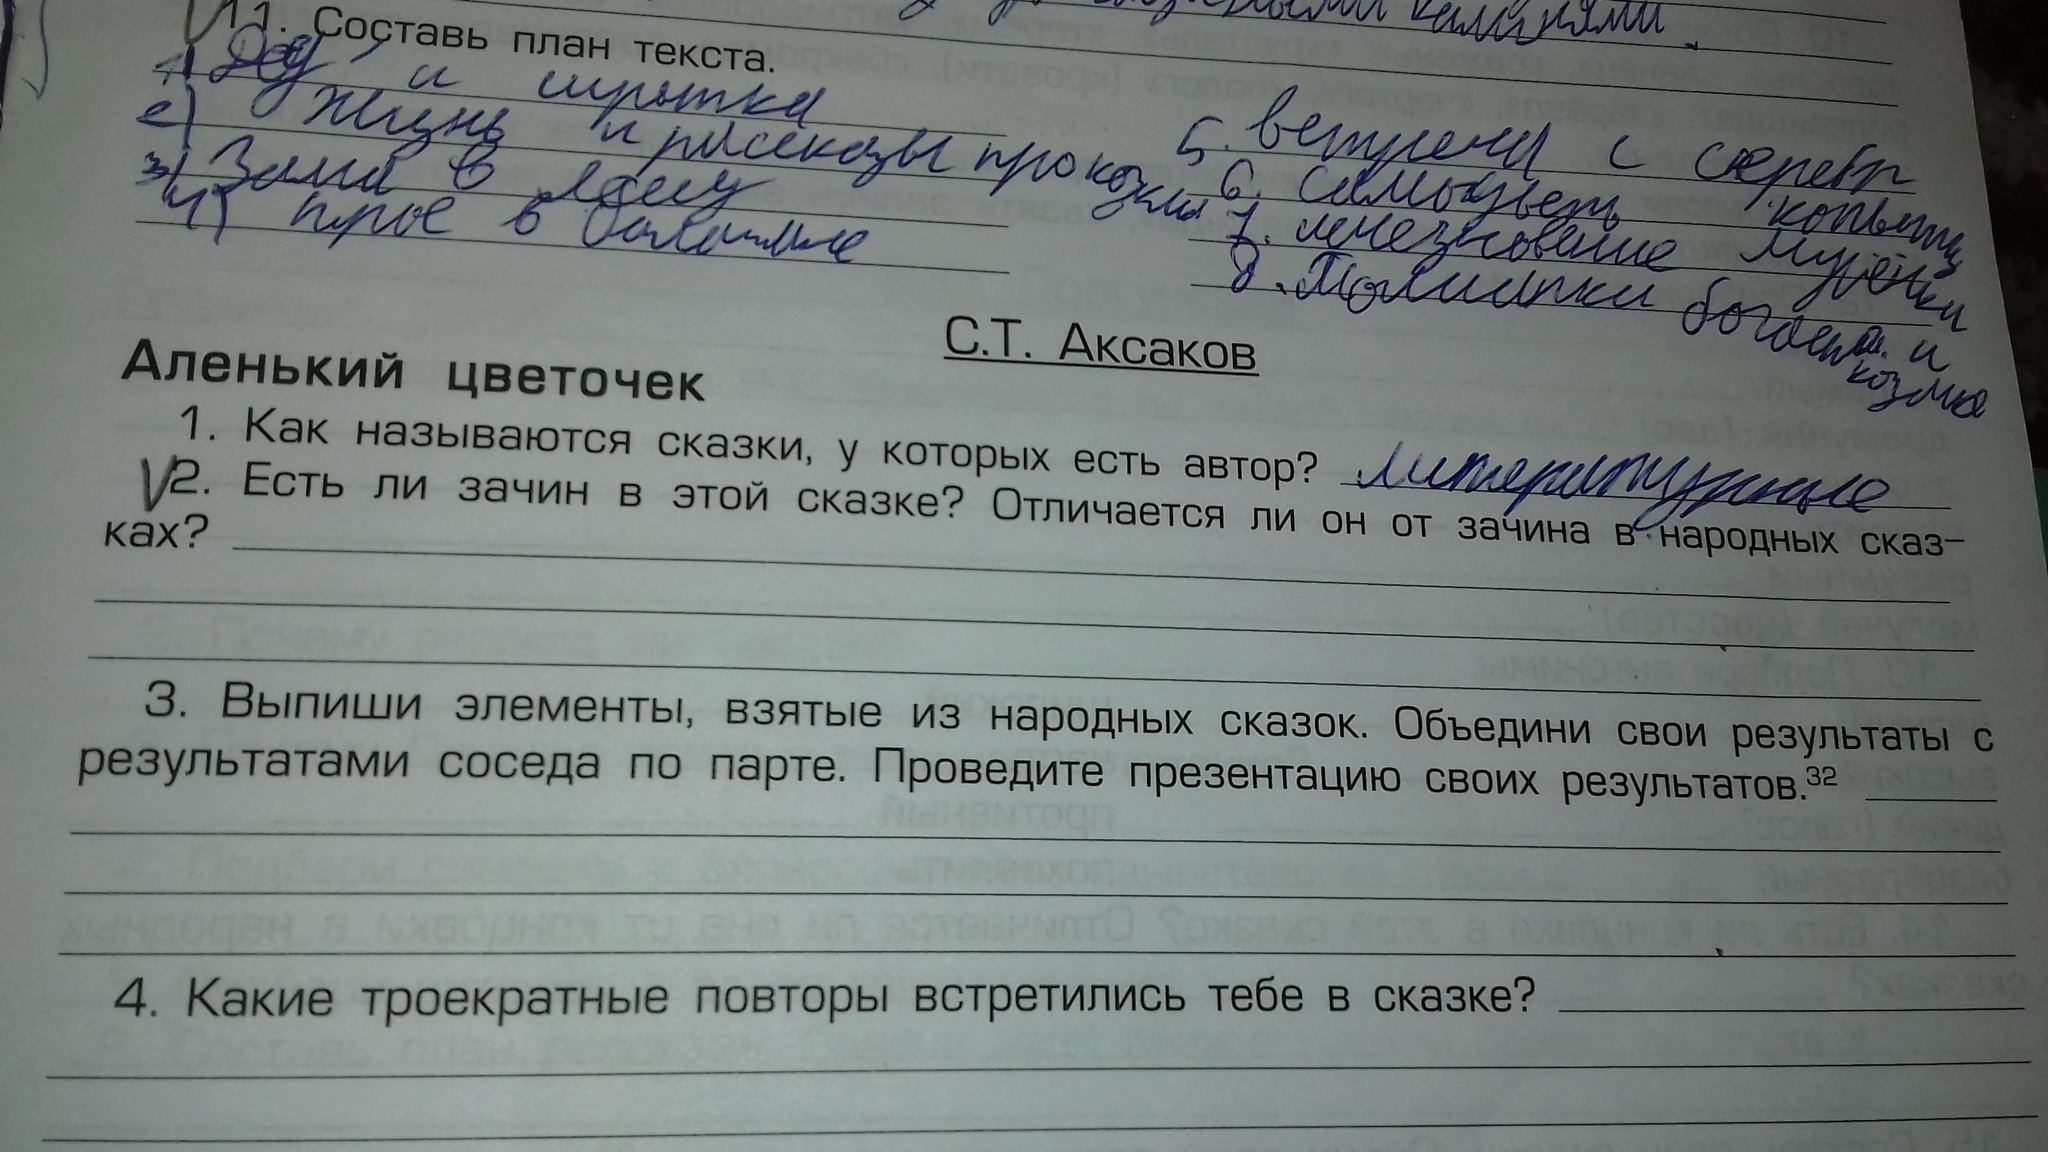 камнями.
11. Составь план текста.
1) Дед и сиротка
2) Жизнь и рассказы про козла
3) Зима в лесу
4) трое в балагане
5. встреча с серебр копытц
6. самоцветы
7. исчезновение Мурёнки
8. богатст. и козлике
С.Т. Аксаков
Аленький цветочек
1. Как называются сказки, у которых есть автор? литературные
V2. Есть ли зачин в этой сказке? Отличается ли он от зачина в народных сказ-
ках?
3. Выпиши элементы, взятые из народных сказок. Объедини свои результаты с
результатами соседа по парте. Проведите презентацию своих результатов.32
4. Какие троекратные повторы встретились тебе в сказке?